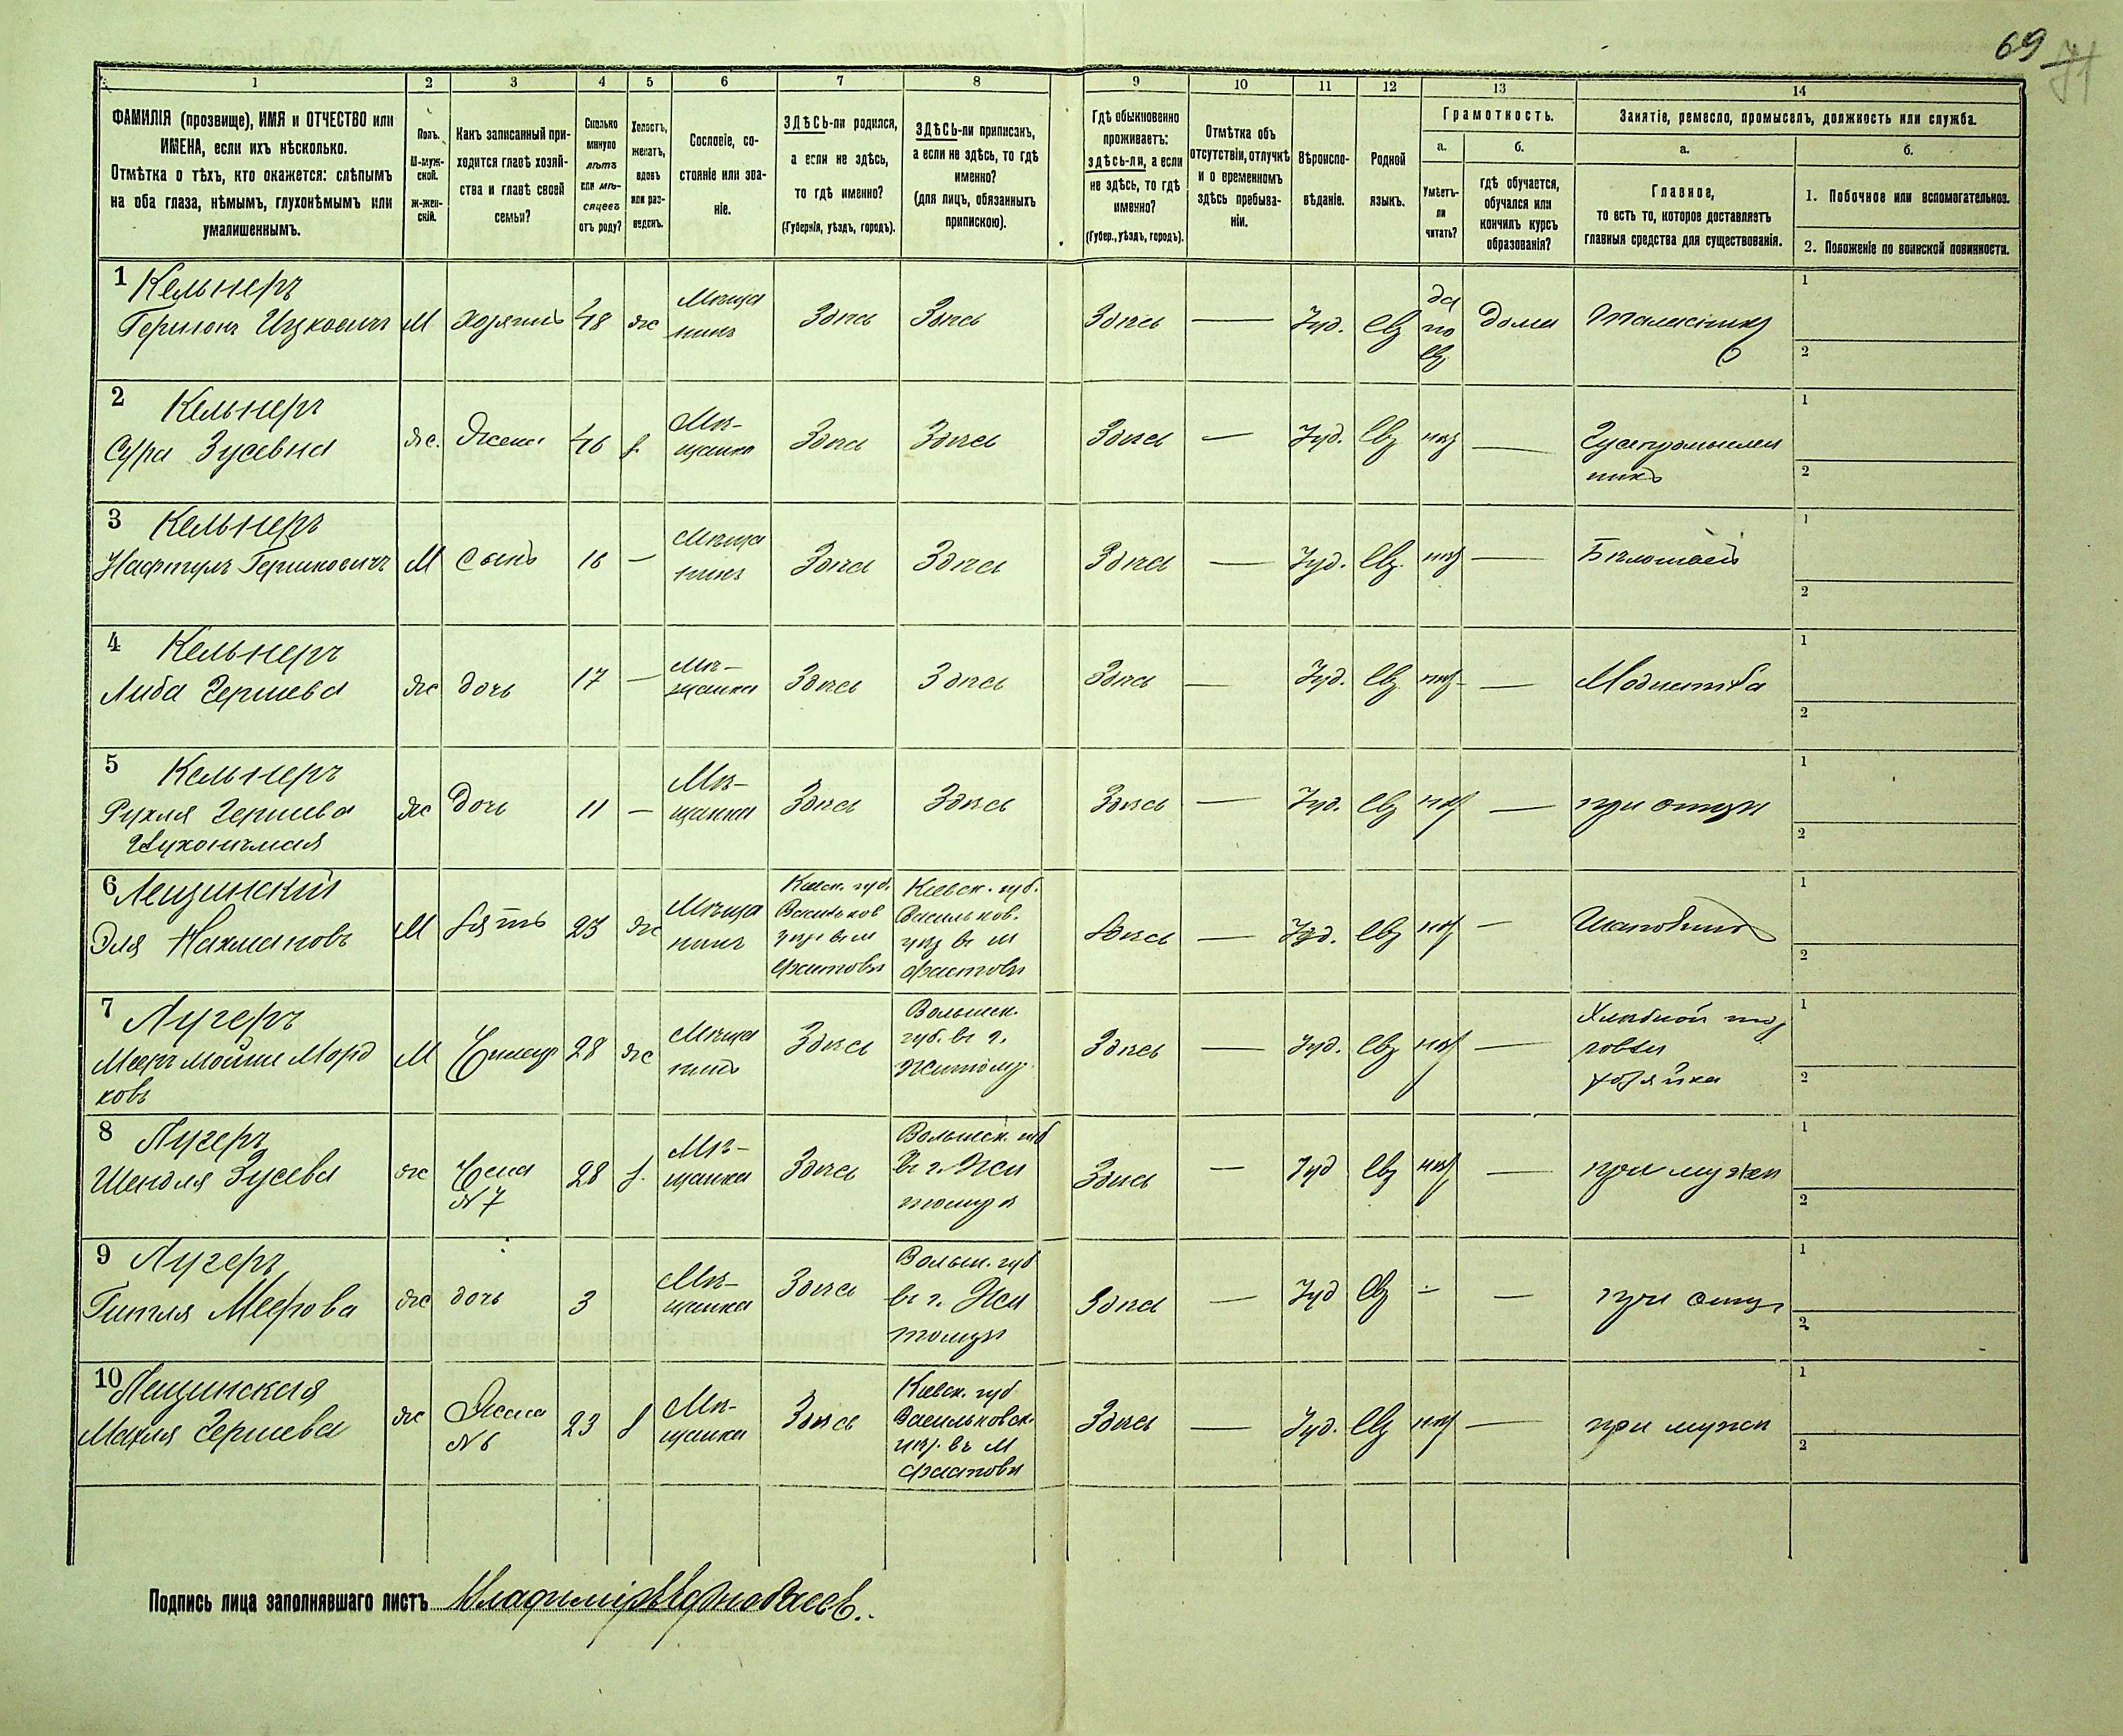 69
71
1 2 3 4 5 6 7 8 9 10 11 12 13 14
ФАМИЛІЯ (прозвище), ИМЯ и ОТЧЕСТВО или
ИМЕНА, если ихъ нѣсколько.
Отмѣтка о тѣхъ, кто окажется: слѣпымъ
на оба глаза, нѣмымъ, глухонѣмымъ или
умалишеннымъ.
Полъ.
М-муж-
ской.
ж-жен-
скій.
Какъ записанный при-
ходится главѣ хозяй-
ства и главѣ своей
семьи?
Сколько
минуло
лѣтъ
или мѣ-
сяцевъ
отъ роду?
Холостъ,
женатъ,
вдовъ
или раз-
веденъ.
Сословіе, со-
стояніе или зва-
ніе.
ЗДѢСЬ-ли родился,
а если не здѣсь,
то гдѣ именно?
(Губернія, уѣздъ, городъ).
ЗДѢСЬ-ли приписанъ,
а если не здѣсь, то гдѣ
именно?
(для лицъ, обязанныхъ
припискою).
Гдѣ обыкновенно
проживаетъ:
здѣсь-ли, а если
не здѣсь, то гдѣ
именно?
(Губер., уѣздъ, городъ).
Отмѣтка объ
отсутствіи, отлучкѣ
и о временномъ
здѣсь пребыва-
ніи.
Вѣроиспо-
вѣданіе.
Родной
языкъ.
Грамотность.
а.
Умѣетъ-
ли
читать?
б.
гдѣ обучается,
обучался или
кончилъ курсъ
образованія?
Занятіе, ремесло, промыселъ, должность или служба.
а.
Главное,
то есть то, которое доставляетъ
главныя средства для существованія.
б.
1. Побочное или вспомогательное.
2. Положеніе по воинской повинности.
1 Кельнеръ
Гершонъ Ицковичъ М хозяинъ 48 ж Мѣща
нинъ Здѣсь Здѣсь Здѣсь — Іуд. Евр да
по
евр дома 1
2
2 Кельнеръ
Сура Зусевна ж. жена 46 з. Мѣ-
щанка Здѣсь Здѣсь Здѣсь — Іуд. Евр нѣт — 1
2
3 Кельнеръ
Нафтулъ Гершковичъ М сынъ 16 — Мѣща
нинъ Здѣсь Здѣсь Здѣсь — Іуд. Евр. нѣт — 1
2
4 Кельнеръ
Либа Гершева ж дочь 17 — Мѣ-
щанка Здѣсь Здѣсь Здѣсь — Іуд. Евр нѣт — Модистка 1
2
5 Кельнеръ
Рухля Гершева
Глухонѣмая ж дочь 11 — Мѣ-
щанка Здѣсь Здѣсь Здѣсь — Іуд. Евр нѣт — при отцѣ 1
2
6 Лещинскій
Эля Нахмановъ М зять 23 ж Мѣща
нинъ Кіевск. губ.
Васильков
уѣз въ м
Фастовѣ Кіевск. губ.
Васильков.
уѣз въ м
Фастовѣ Здѣсь — Іуд. Евр нѣт — 1
2
7 Лугеръ
Мееръ Мойше Морд
ковъ М 28 ж Мѣща
нинъ Здѣсь Волынск.
губ. въ г.
Житомір Здѣсь — Іуд. Евр нѣт — Хлѣбной тор
говли
хозяйка 1
2
8 Лугеръ
Шендля Зусева ж жена
№ 7 28 з. Мѣ-
щанка Здѣсь Волынск. губ
въ г. Жи
томірѣ Здѣсь — Іуд Евр нѣт — при мужѣ 1
2
9 Лугеръ
Гитля Меерова ж дочь 3 Мѣ-
щанка Здѣсь Волын. губ
въ г. Жи
томірѣ Здѣсь — Іуд Евр — — при отцѣ 1
2
10 Лещинская
Махля Гершева ж Жена
№ 6 23 з Мѣ-
щанка Здѣсь Кіевск. губ
Васильковск.
уѣз. въ м
Фастовѣ Здѣсь — Іуд. Евр нѣт — при мужѣ 1
2
Подпись лица заполнявшаго листъ Владиміръ